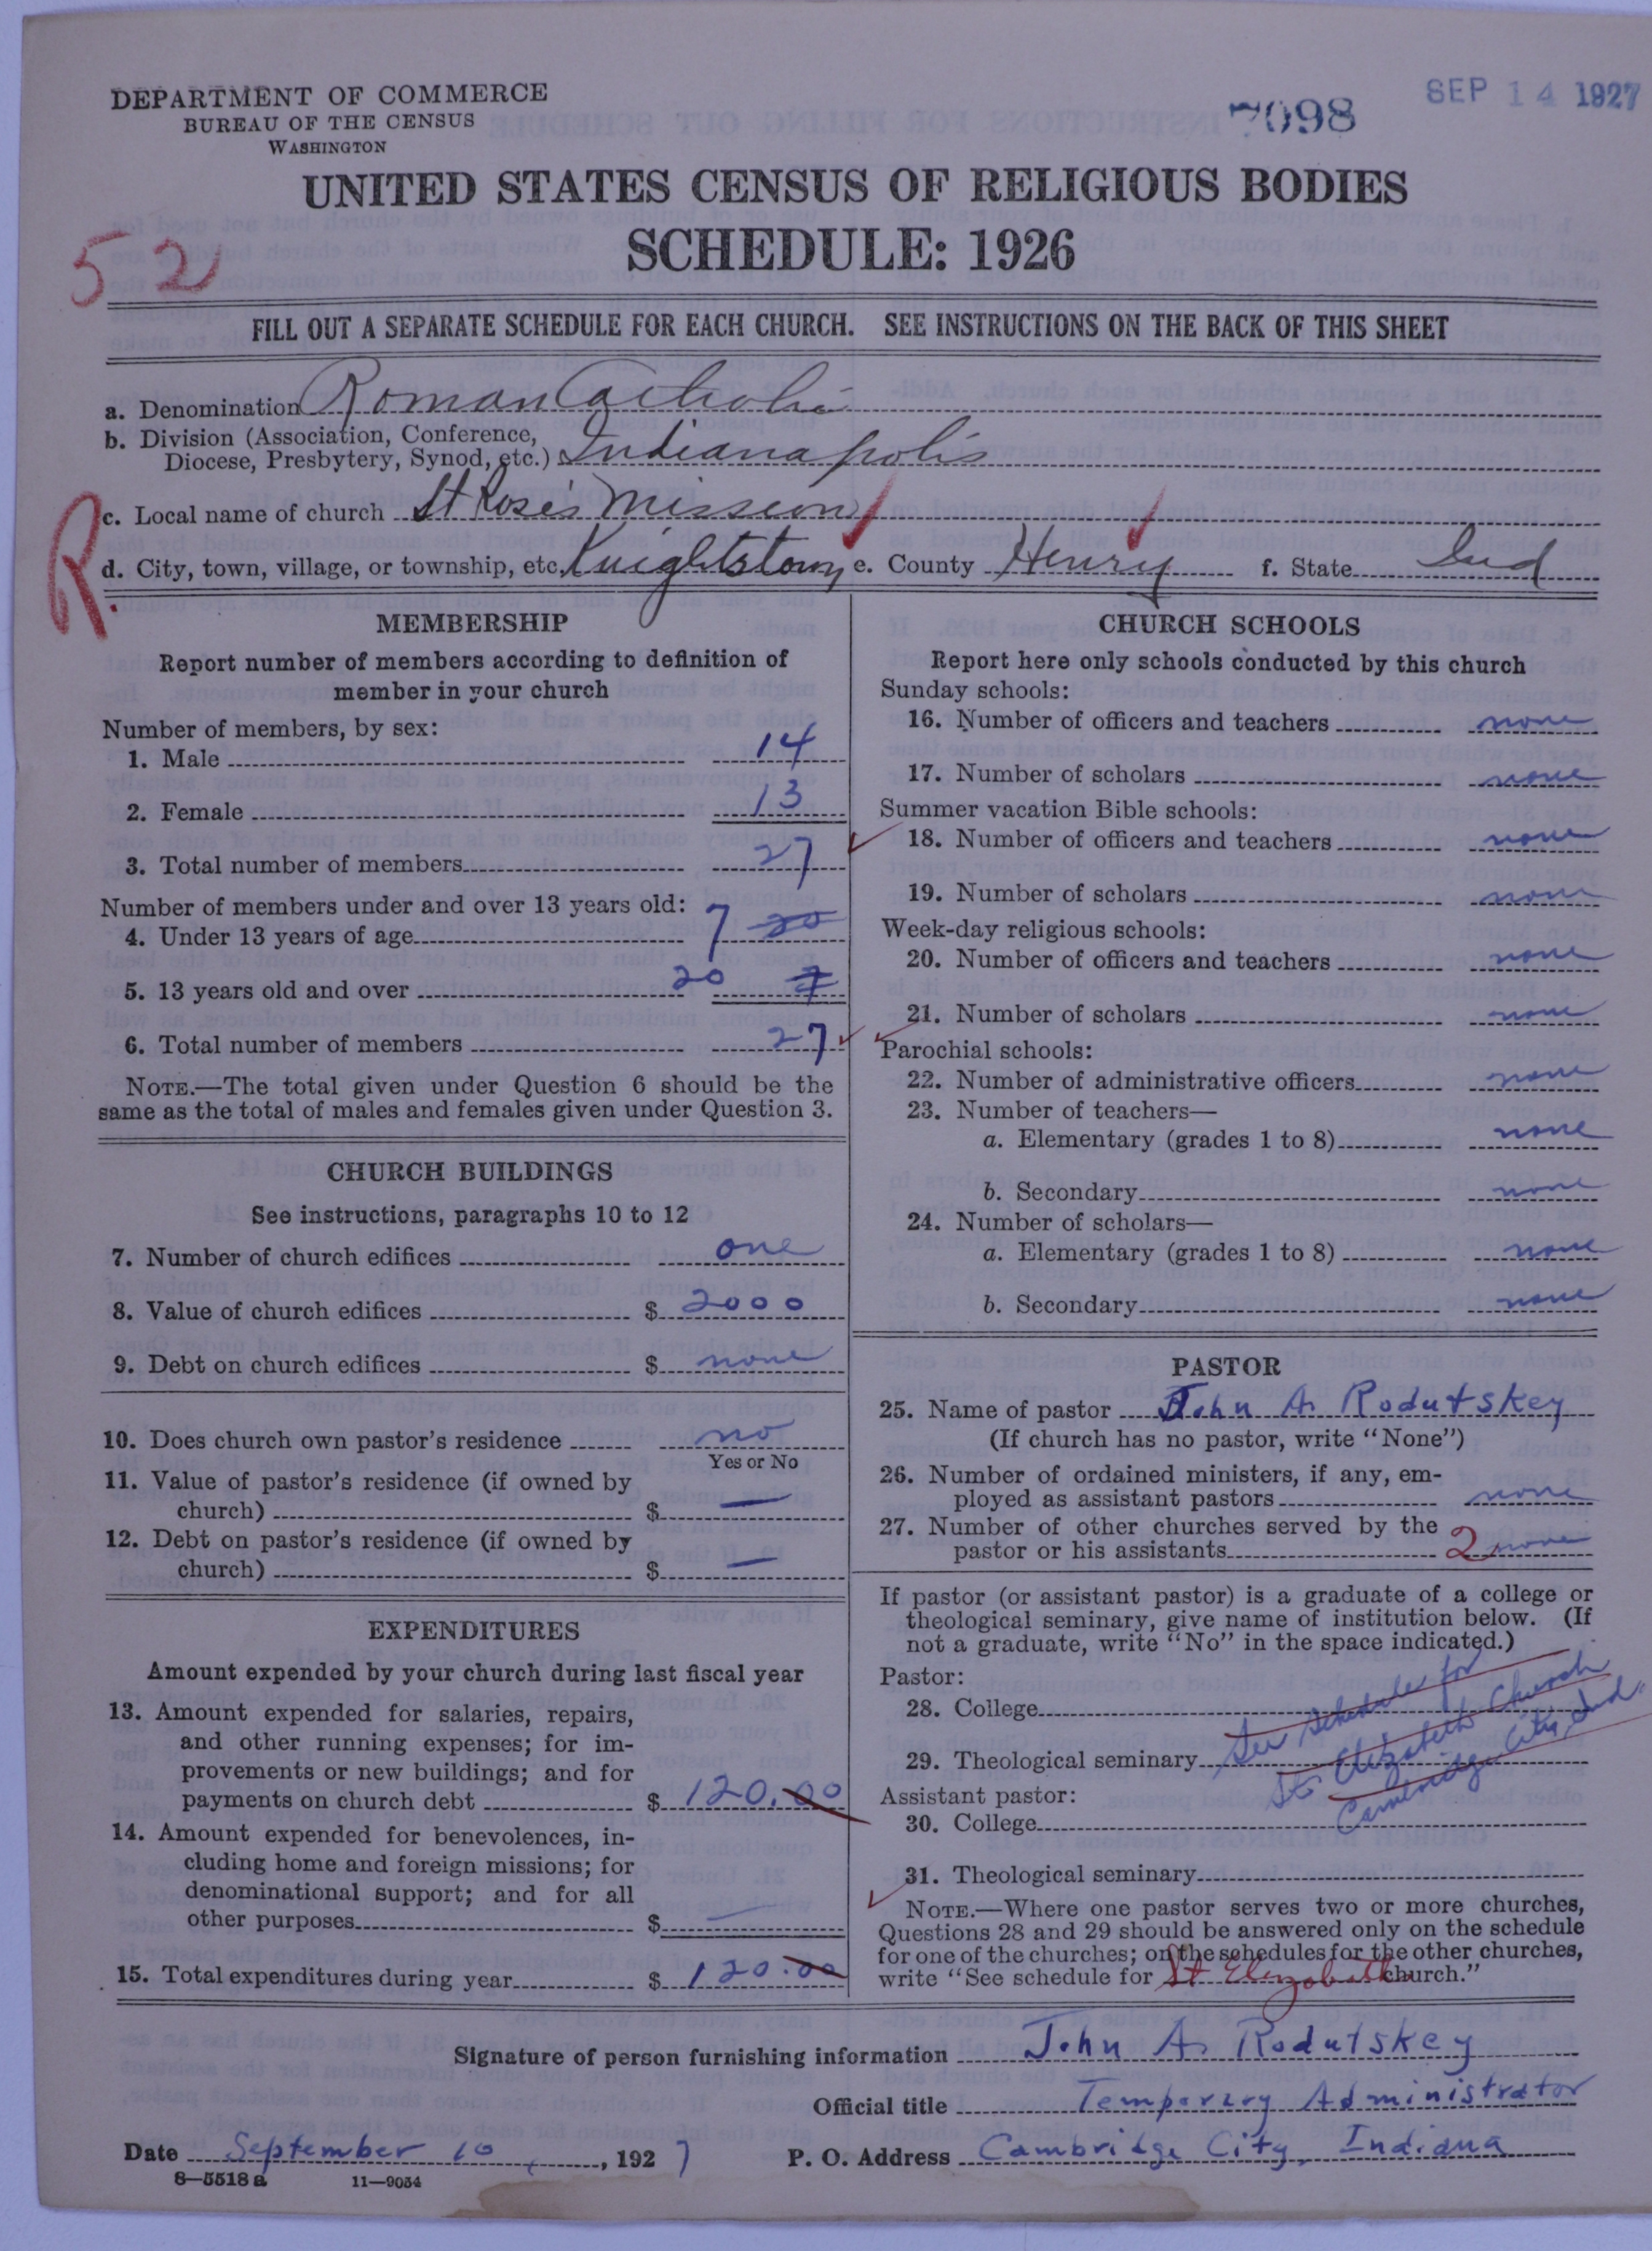 DEPARTMENT OF COMMERCE
BUREAU OF THE CENSUS
WASHINGTON
7098
SEP 14 1927
UNITED STATES CENSUS OF RELIGIOUS BODIES
SCHEDULE: 1926
52
FILL OUT A SEPARATE SCHEDULE FOR EACH CHURCH. SEE INSTRUCTIONS ON THE BACK OF THIS SHEET
a. Denomination Roman Catholic
b. Division (Association, Conference,
Diocese, Presbytery, Synod, etc.) Indianapolis
R.
c. Local name of church St Rose's Mission
d. City, town, village, or township, etc. Knightstown e. County Henry f. State Ind
MEMBERSHIP
Report number of members according to definition of
member in your church
Number of members, by sex:
1. Male 14
2. Female 13
3. Total number of members 27
Number of members under and over 13 years old:
4. Under 13 years of age 7 20
5. 13 years old and over 20 7
6. Total number of members 27
NOTE.—The total given under Question 6 should be the
same as the total of males and females given under Question 3.
CHURCH BUILDINGS
See instructions, paragraphs 10 to 12
7. Number of church edifices one
8. Value of church edifices $ 2000
9. Debt on church edifices $ none
10. Does church own pastor's residence no
Yes or No
11. Value of pastor's residence (if owned by
church) $ —
12. Debt on pastor's residence (if owned by
church) $ —
EXPENDITURES
Amount expended by your church during last fiscal year
13. Amount expended for salaries, repairs,
and other running expenses; for im-
provements or new buildings; and for
payments on church debt $ 120.00
14. Amount expended for benevolences, in-
cluding home and foreign missions; for
denominational support; and for all
other purposes $ —
15. Total expenditures during year $ 120.00
CHURCH SCHOOLS
Report here only schools conducted by this church
Sunday schools:
16. Number of officers and teachers none
17. Number of scholars none
Summer vacation Bible schools:
18. Number of officers and teachers none
19. Number of scholars none
Week-day religious schools:
20. Number of officers and teachers none
21. Number of scholars none
Parochial schools:
22. Number of administrative officers none
23. Number of teachers—
a. Elementary (grades 1 to 8) none
b. Secondary none
24. Number of scholars—
a. Elementary (grades 1 to 8) none
b. Secondary none
PASTOR
25. Name of pastor John A. Rodutskey
(If church has no pastor, write "None")
26. Number of ordained ministers, if any, em-
ployed as assistant pastors none
27. Number of other churches served by the
pastor or his assistants 2 none
If pastor (or assistant pastor) is a graduate of a college or
theological seminary, give name of institution below. (If
not a graduate, write "No" in the space indicated.)
Pastor:
28. College
29. Theological seminary See schedule for
St Elizabeth Church
Cambridge City, Ind.
Assistant pastor:
30. College
31. Theological seminary
NOTE.—Where one pastor serves two or more churches,
Questions 28 and 29 should be answered only on the schedule
for one of the churches; on the schedules for the other churches,
write "See schedule for St Elizabeth church."
Signature of person furnishing information John A. Rodutskey
Official title Temporary Administrator
Date September 10, 1927 P. O. Address Cambridge City, Indiana
8—5518 a 11—9054